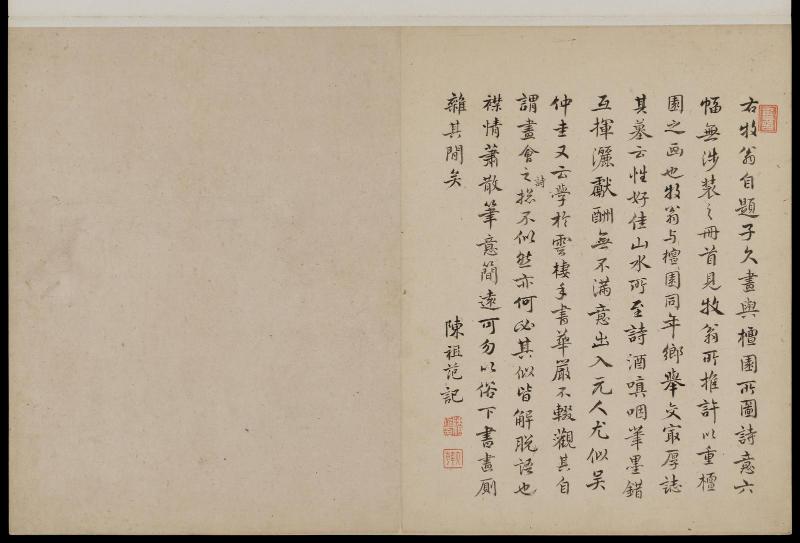 右牧翁自題子久畫與檀園所圖詩意六
幅無涉裝之冊首見牧翁所推許以重檀
園之画也牧翁与檀園同年鄉舉交㝡厚誌
其墓云性好佳山水所至詩酒嗔咽筆墨錯
互揮灑獻酬無不滿意出入元人尤似吴
仲圭又云學於雲棲手書華嚴不輟觀其自
謂畫會之詩㧾不似然亦何必其似皆解脱語也
襟情蕭散筆意簡遠可勿以俗下書畫厠
雜其間矣
陳祖范記